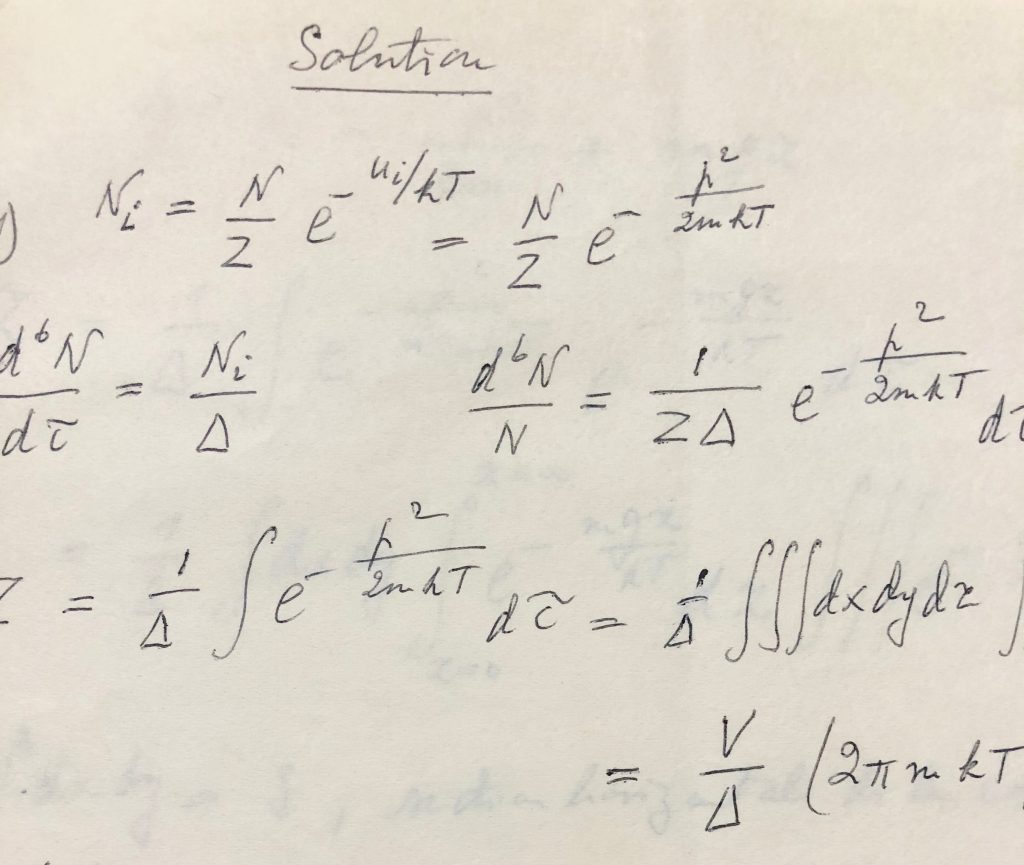 Solution
) Nᵢ = N/Z e^(- uᵢ/kT) = N/Z e^(- p²/2mkT)
d⁶N/dτ̃ = Nᵢ/Δ d⁶N/N = 1/ZΔ e^(- p²/2mkT) dτ̃
Z = 1/Δ ∫ e^(- p²/2mkT) dτ̃ = 1/Δ ∭ dx dy dz ∫
= V/Δ (2π m kT